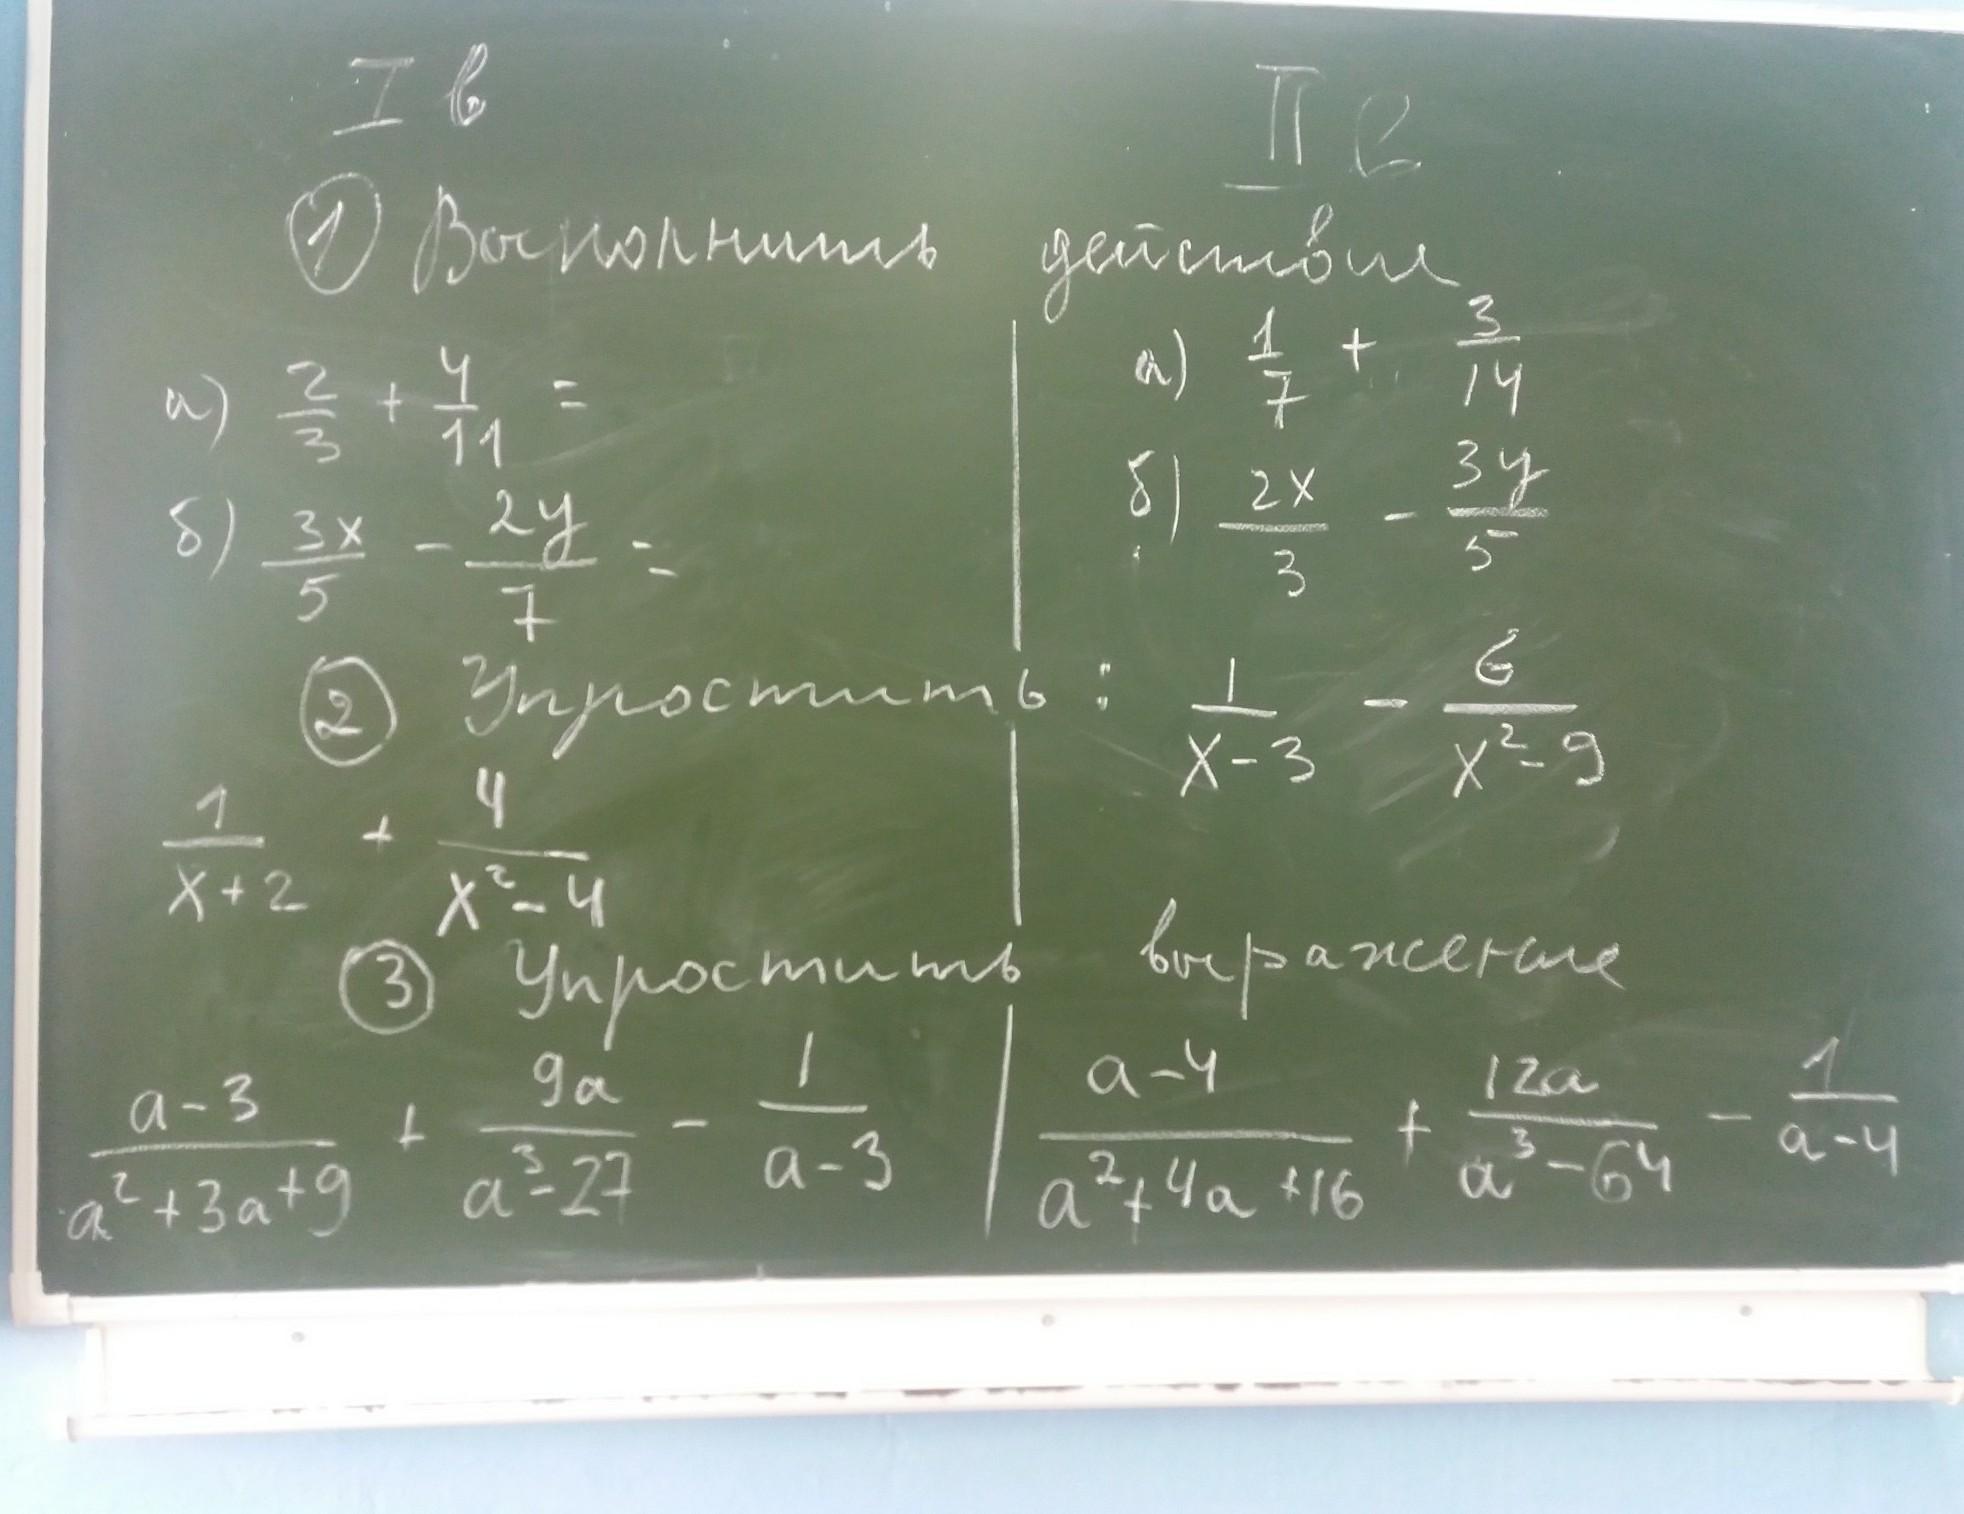 I в
II в
① Выполнить действие
а) 2/3 + 4/11 =
а) 1/7 + 3/14
б) 3x/5 - 2y/7 =
б) 2x/3 - 3y/5
② Упростить :
1/(x+2) + 4/(x²-4)
1/(x-3) - 6/(x²-9)
③ Упростить выражение
(a-3)/(a²+3a+9) + 9a/(a³-27) - 1/(a-3)
(a-4)/(a²+4a+16) + 12a/(a³-64) - 1/(a-4)